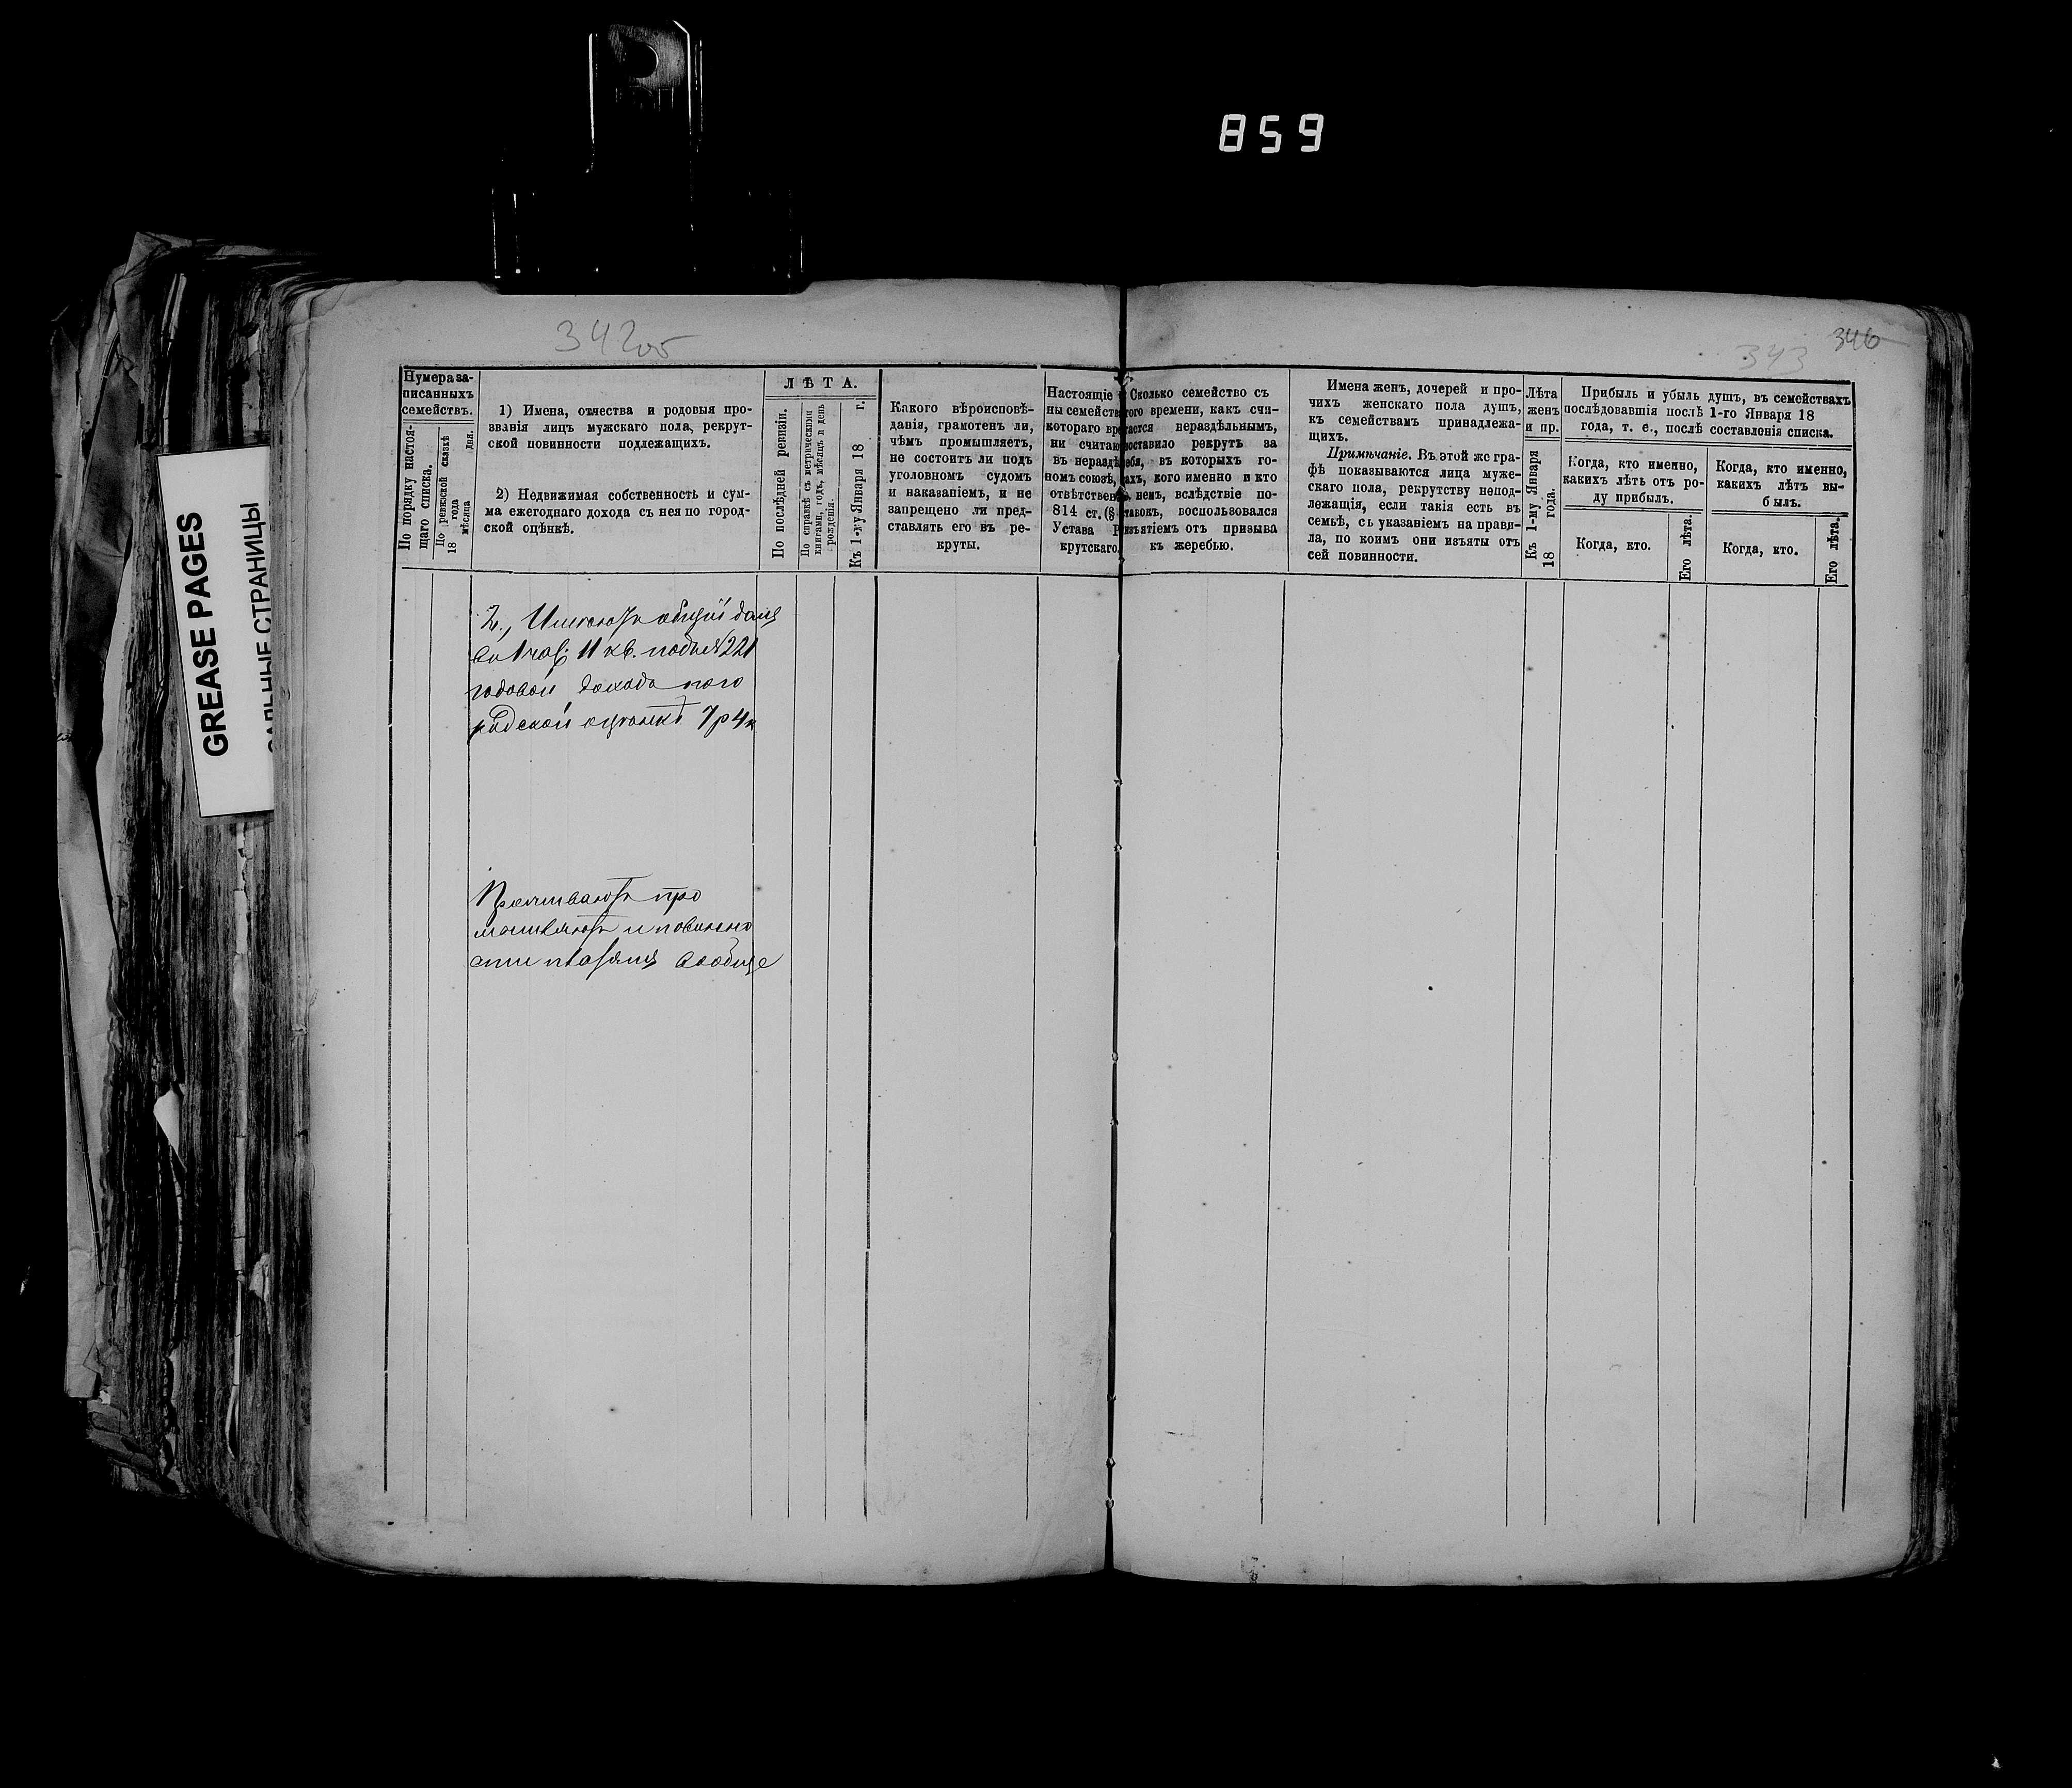 859
342об
343
346
GREASE PAGES
САЛЬНЫЕ СТРАНИЦЫ
Нумера за-
писанныхъ
семействъ.
По порядку настоя-
щаго списка.
По ревизской сказкѣ
18 года
мѣсяца дня.
1) Имена, отчества и родовыя про-
званія лицъ мужскаго пола, рекрут-
ской повинности подлежащихъ.
2) Недвижимая собственность и сум-
ма ежегоднаго дохода съ нея по город-
ской оцѣнкѣ.
ЛѢТА.
По послѣдней ревизіи.
По справкѣ съ метрическими
книгами, годъ, мѣсяцъ и день
рожденія.
Къ 1-му Января 18 г.
Какого вѣроисповѣ-
данія, грамотенъ ли,
чѣмъ промышляетъ,
не состоитъ ли подъ
уголовномъ судомъ
и наказаніемъ, и не
запрещено ли пред-
ставлять его въ ре-
круты.
Настоящіе
ны семейств
котораго вре
ни считаю
въ неразд
номъ союзѣ,
отвѣтствен
814 ст. (§
Устава Р
крутскаго.
Сколько семейство съ
того времени, какъ счи-
тается нераздѣльнымъ,
поставило рекрутъ за
себя, въ которыхъ го-
ахъ, кого именно и кто
немъ, вслѣдствіе по-
тавокъ, воспользовался
изъятіемъ отъ призыва
къ жеребью.
Имена женъ, дочерей и про-
чихъ женскаго пола душъ,
къ семействамъ принадлежа-
щихъ.
Примѣчаніе. Въ этой же гра-
фѣ показываются лица муже-
скаго пола, рекрутству непод-
лежащія, если такія есть въ
семьѣ, съ указаніемъ на прави-
ла, по коимъ они изъяты отъ
сей повинности.
Лѣта
женъ
и пр.
Къ 1-му Января
18 года.
Прибыль и убыль душъ, въ семействахъ
послѣдовавшія послѣ 1-го Января 18
года, т. е., послѣ составленія списка.
Когда, кто именно,
какихъ лѣтъ отъ ро-
ду прибылъ.
Когда, кто.
Его лѣта.
Когда, кто именно,
какихъ лѣтъ вы-
былъ.
Когда, кто.
Его лѣта.
2., Имѣютъ общій домъ
въ 1 час: 11 кв. подъ № 221
годовой доходъ по го
родской оцѣнкѣ 7 р 4 к
Проживаютъ про
мышляютъ и повинно
сти платятъ вообще